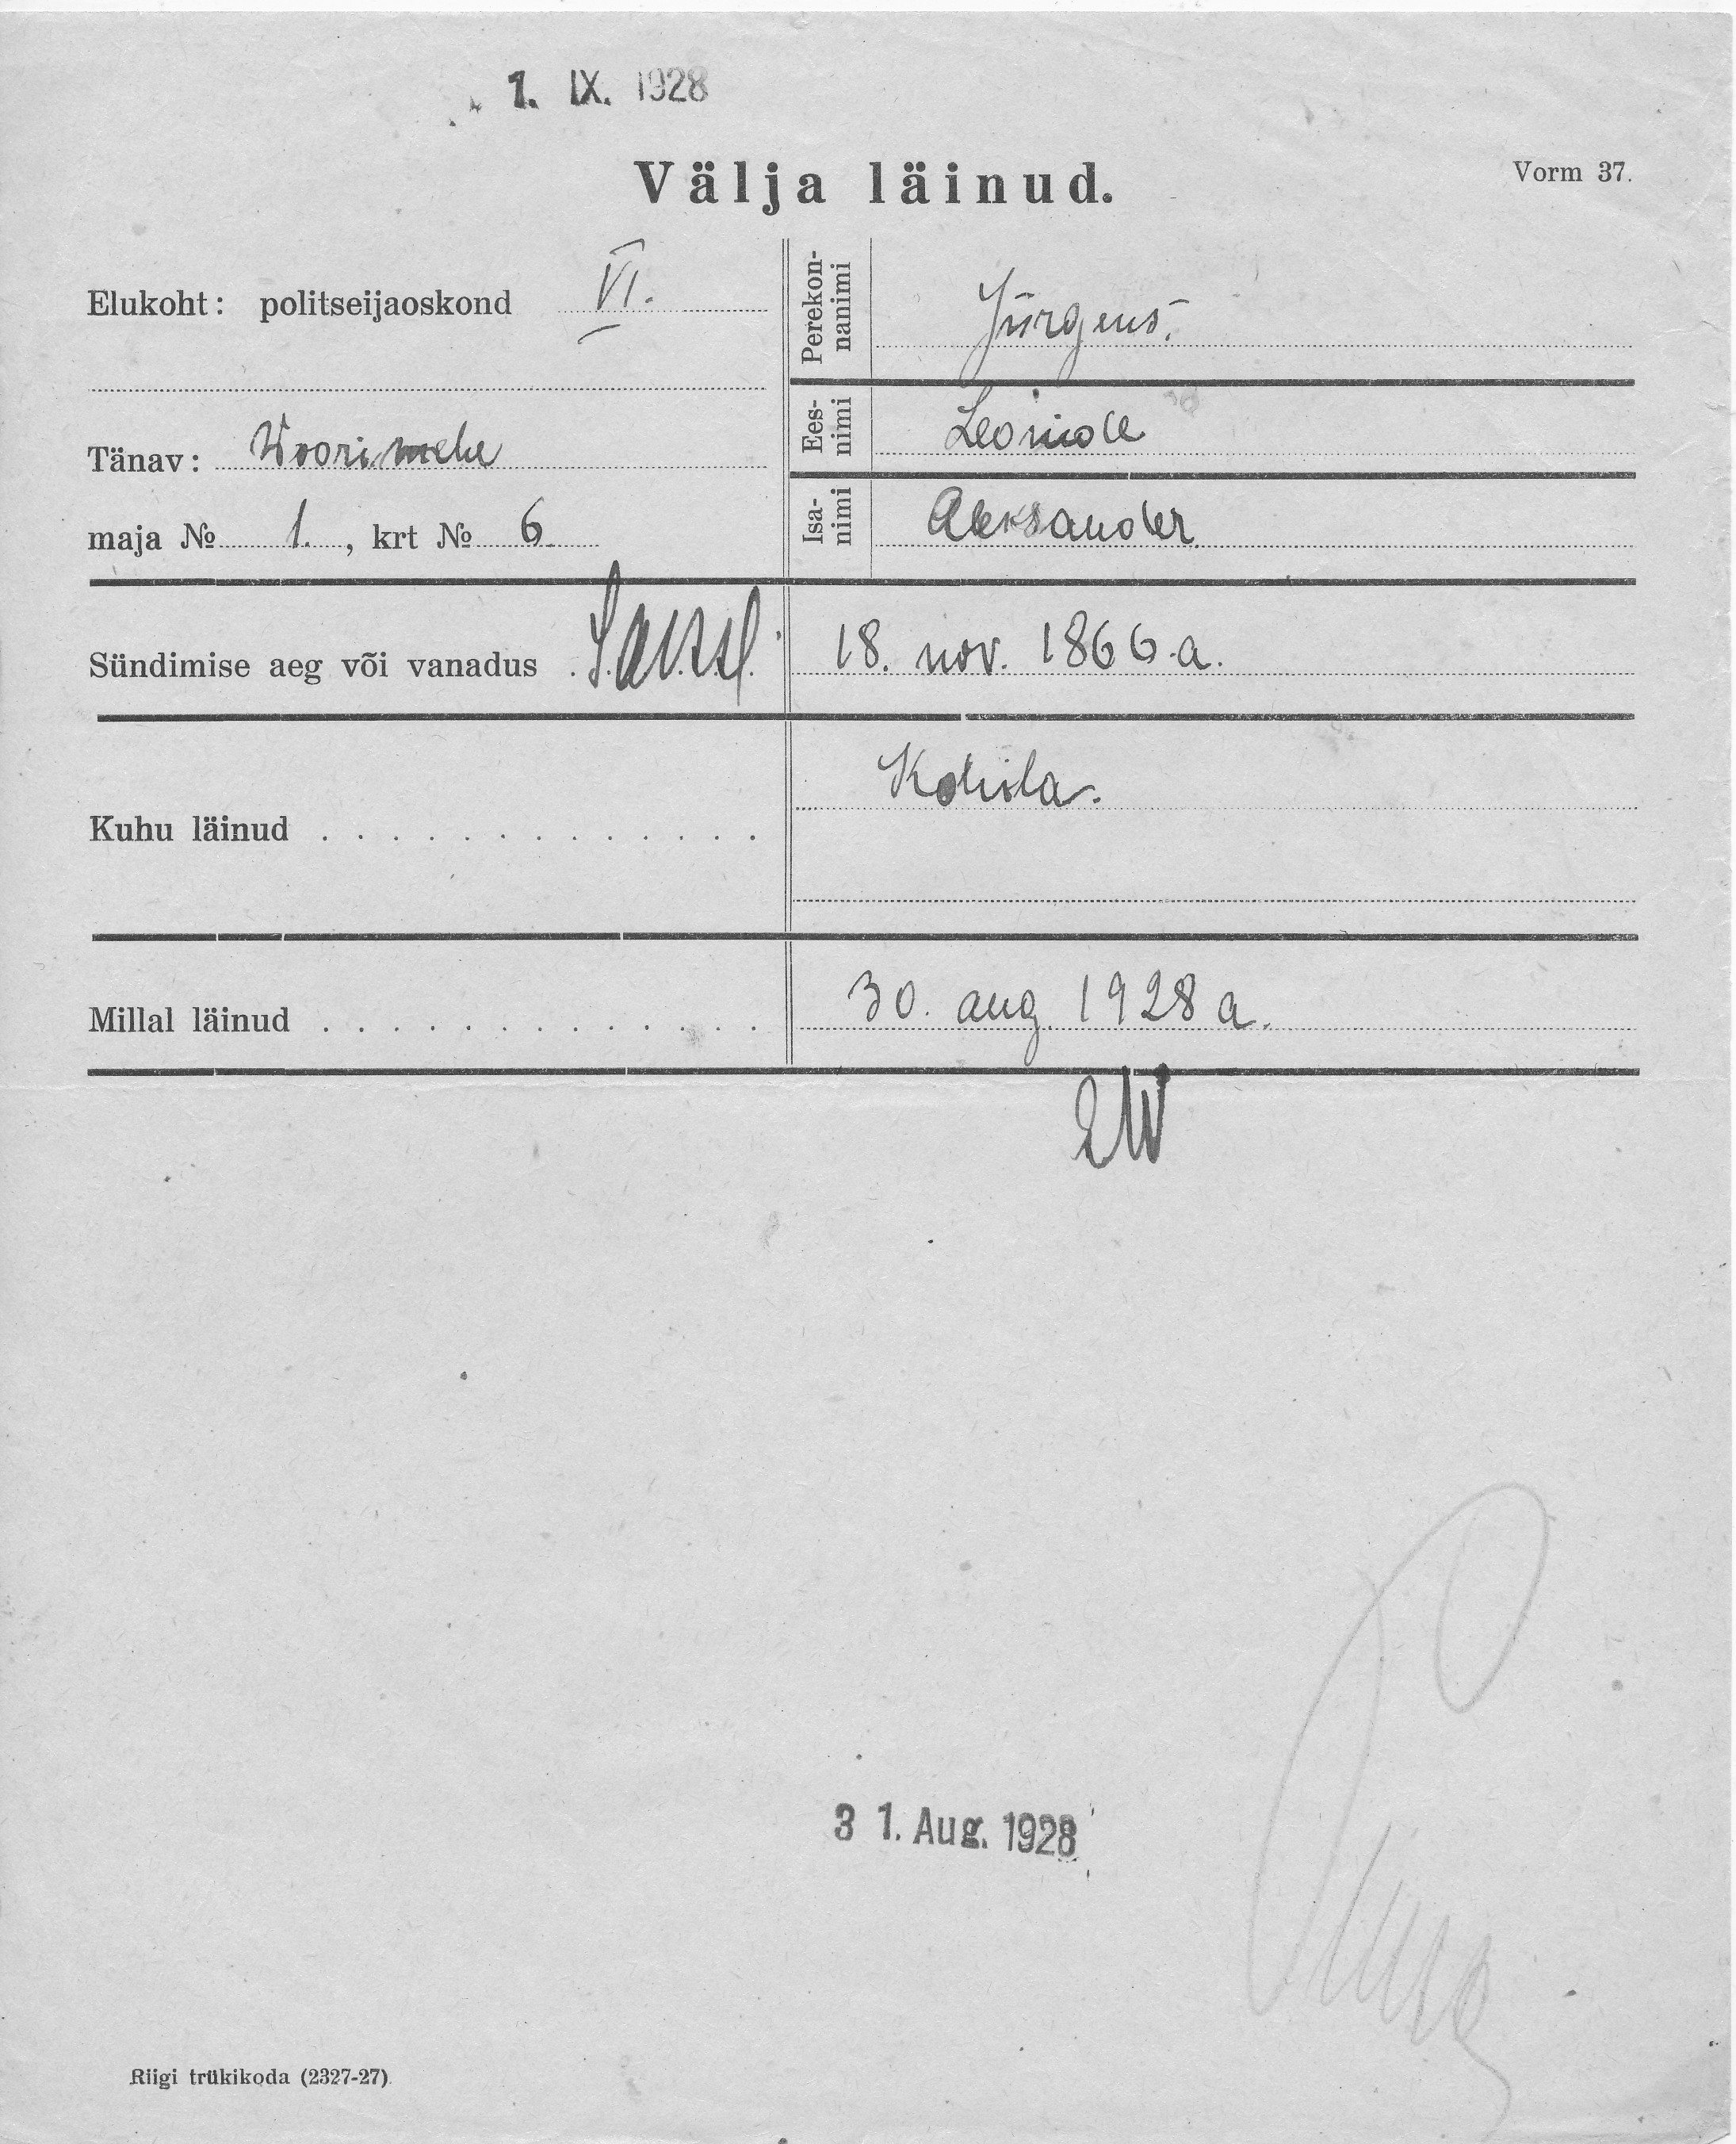 1. IX. 1928
Välja läinud.
Vorm 37.
Elukoht: politseijaoskond VI.
Perekon-
nanimi
Jürgens.
Tänav: Woorimehe
Ees-
nimi
Leonide
maja № 1., krt № 6
Isa-
nimi
Aleksander
Sündimise aeg või vanadus
18. nov. 1866.a.
Kuhu läinud
Kohila.
Millal läinud
30. aug. 1928 a.
31. Aug. 1928
Riigi trükikoda (2327-27)